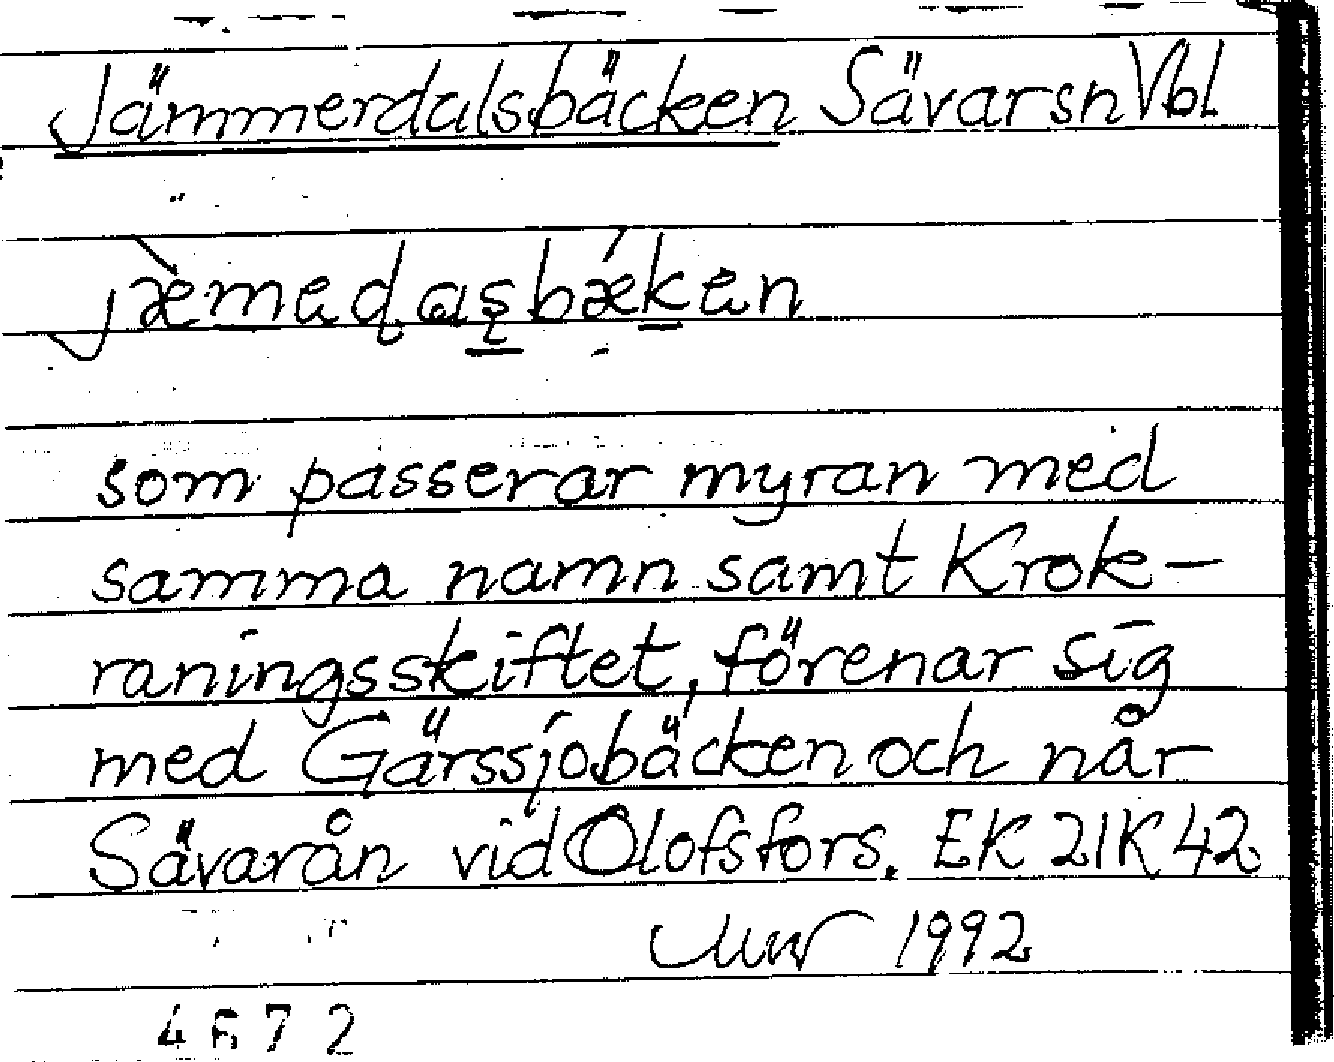 Jämmerdalsbäcken Sävar sn Vbl
jæ̀medasbǽken
som passerar myran med
samma namn samt Krok-
raningsskiftet, förenar sig
med Gärssjöbäcken och når
Sävarån vid Olofsfors. EK 21K 42
1992
4672